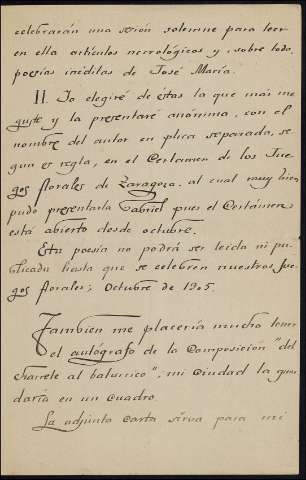 celebrarán una sesión solemne para leer
en ella artículos necrológicos y, sobre todo,
poesías inéditas de José María.
II. Yo elegiré de éstas la que más me
guste y la presentaré anónima, con el
nombre del autor en plica separada, se-
gun es regla, en el Certamen de los Jue-
gos florales de Zaragoza. al cual muy bien
pudo presentarla Gabriel pues el Certámen
está abierto desde octubre.
Esta poesía no podrá ser leida ni pu-
blicada hasta que se celebren nuestros Jue-
gos florales; Octubre de 1905.
Tambien me placería mucho tener
el autógrafo de la composición "del
charrete al baturrico", mi ciudad la guar-
daría en un cuadro.
La adjunta carta sirva para mi